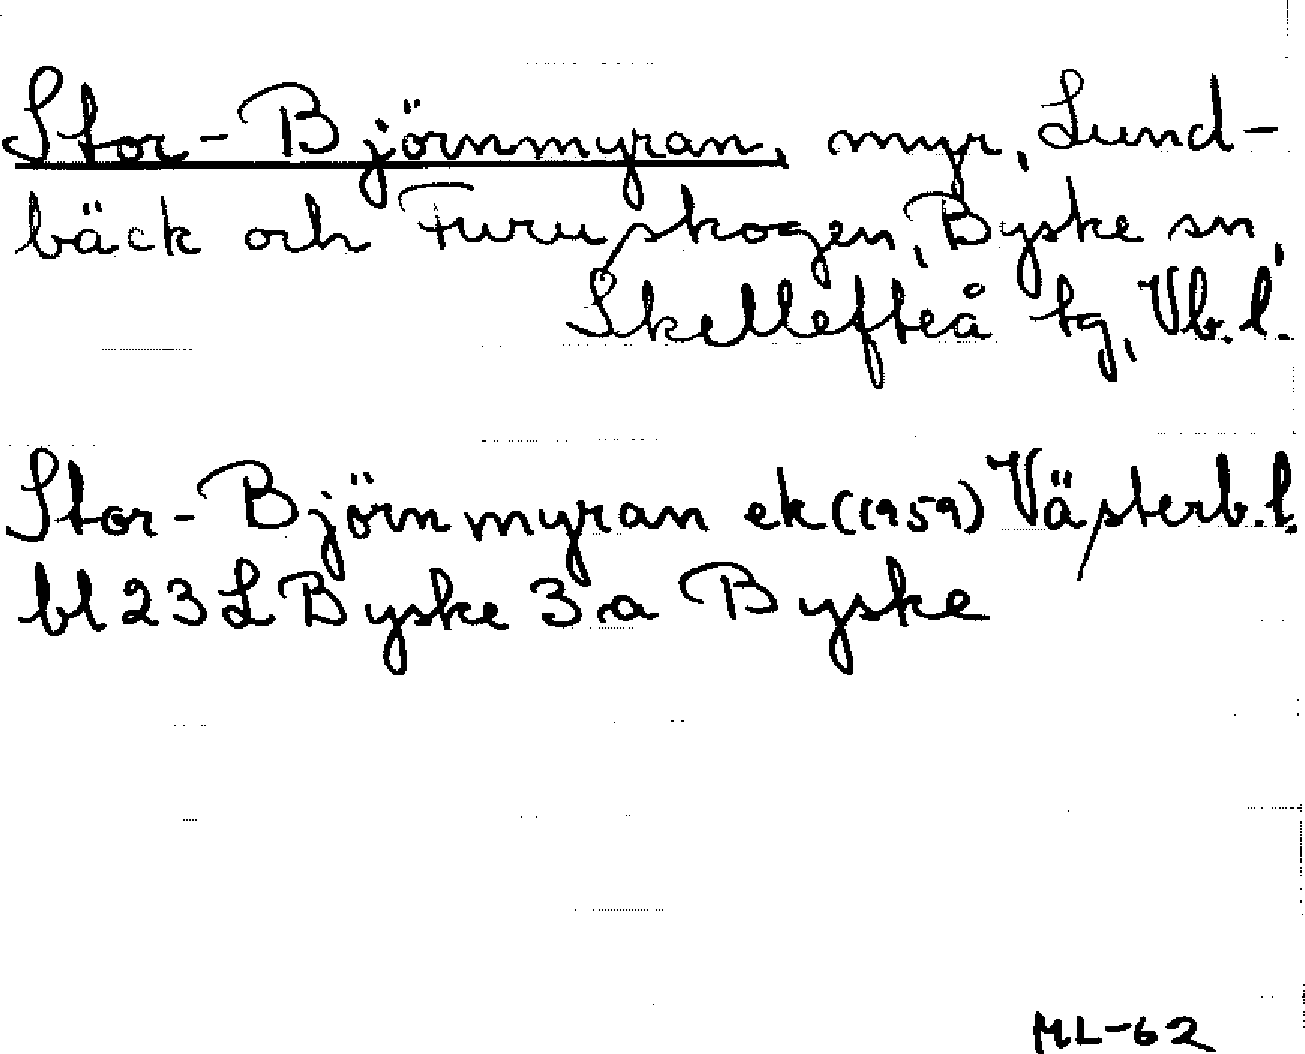 Stor-Björnmyran, myr, Lund-
bäck och Furuskogen, Byske sn,
Skellefteå tg, Vb. l.
Stor-Björnmyran ek (1959) Västerb. l.
bl 23 L Byske 3 a Byske
ML-62